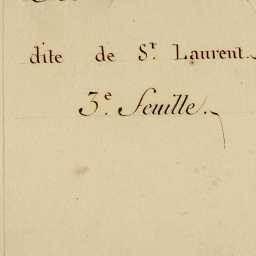 dite de S.t Laurent.
3.e Feuille.